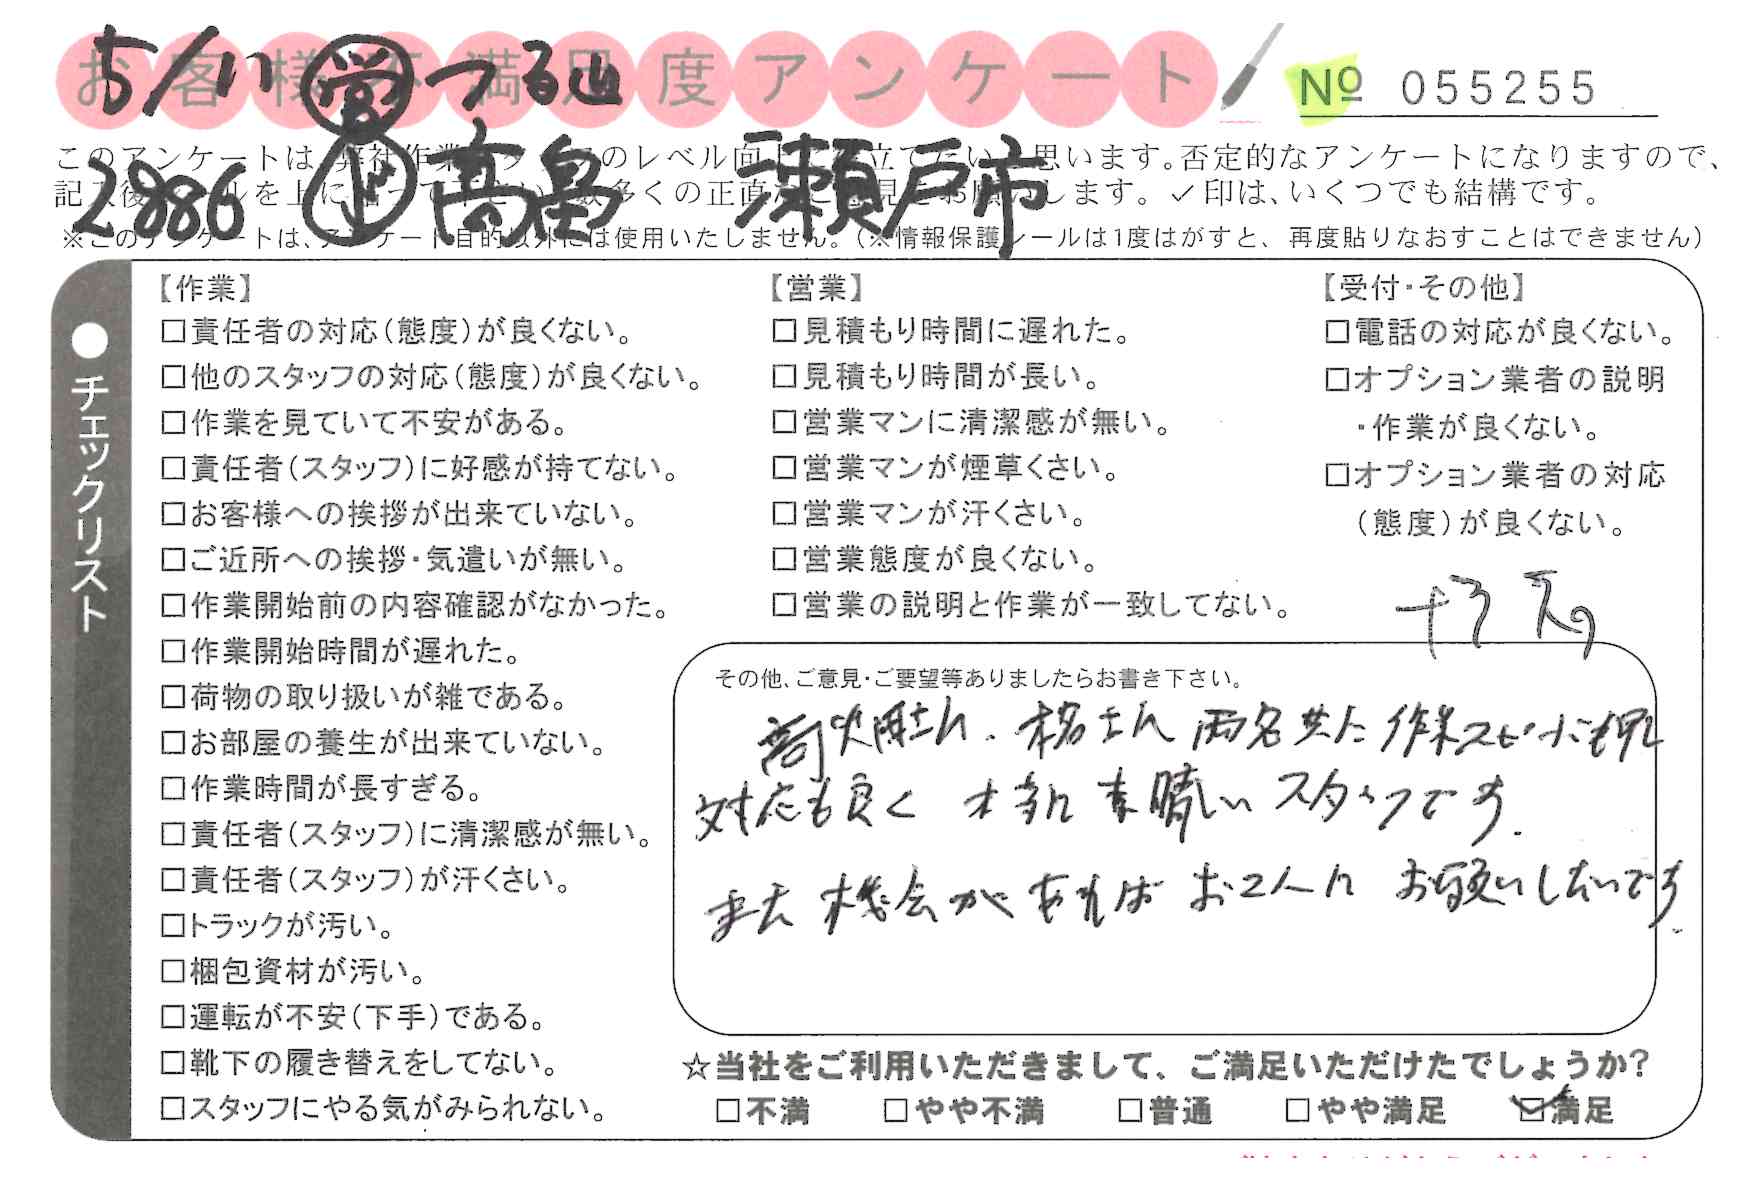 お客様不満足度アンケート
5/11 営 つる迫
№ 055255
2886 上 高畠 瀬戸市
このアンケートは、弊社作業スタッフのレベル向上に役立てたいと思います。否定的なアンケートになりますので、
記入後、シールを上に貼って下さい。数多くの正直なご意見をお願いします。✓印は、いくつでも結構です。
※このアンケートは、アンケート目的以外には使用いたしません。（※情報保護シールは1度はがすと、再度貼りなおすことはできません）
●チェックリスト
【作業】
□責任者の対応（態度）が良くない。
□他のスタッフの対応（態度）が良くない。
□作業を見ていて不安がある。
□責任者（スタッフ）に好感が持てない。
□お客様への挨拶が出来ていない。
□ご近所への挨拶・気遣いが無い。
□作業開始前の内容確認がなかった。
□作業開始時間が遅れた。
□荷物の取り扱いが雑である。
□お部屋の養生が出来ていない。
□作業時間が長すぎる。
□責任者（スタッフ）に清潔感が無い。
□責任者（スタッフ）が汗くさい。
□トラックが汚い。
□梱包資材が汚い。
□運転が不安（下手）である。
□靴下の履き替えをしてない。
□スタッフにやる気がみられない。
【営業】
□見積もり時間に遅れた。
□見積もり時間が長い。
□営業マンに清潔感が無い。
□営業マンが煙草くさい。
□営業マンが汗くさい。
□営業態度が良くない。
□営業の説明と作業が一致してない。
【受付・その他】
□電話の対応が良くない。
□オプション業者の説明
・作業が良くない。
□オプション業者の対応
（態度）が良くない。
その他、ご意見・ご要望等ありましたらお書き下さい。
さん、 さん 両名共に 作業スピードも早し
対応も良く 本当に 素晴しい スタッフです.
また 機会が あれば お2人に お願いしたいです.
☆当社をご利用いただきまして、ご満足いただけたでしょうか？
□不満 □やや不満 □普通 □やや満足 ☑満足